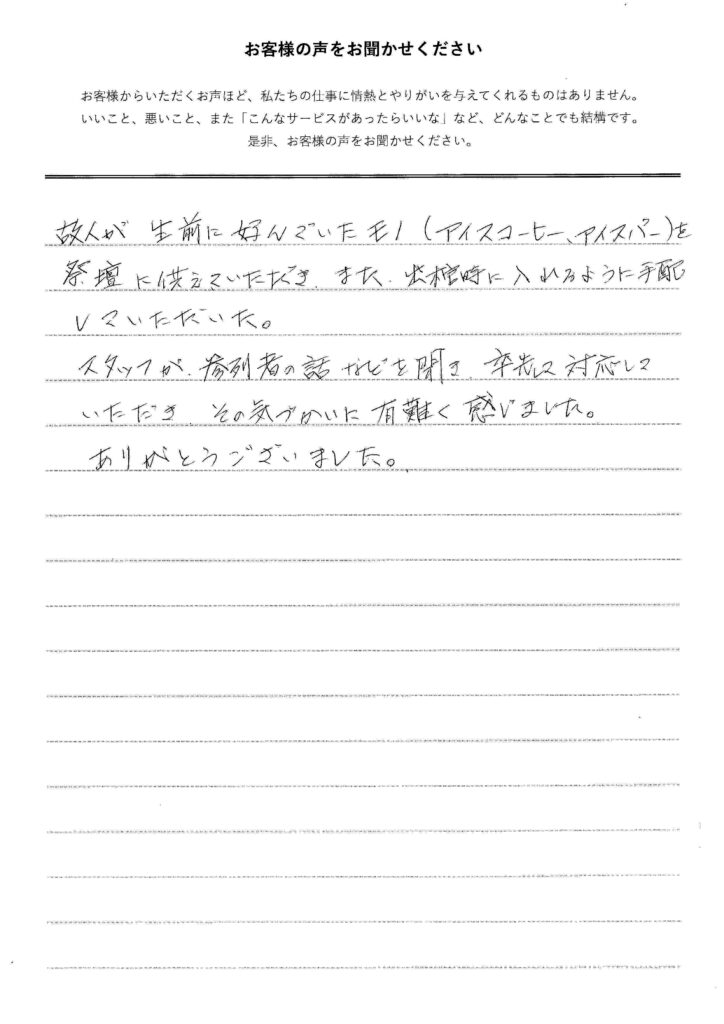 お客様の声をお聞かせください
お客様からいただくお声ほど、私たちの仕事に情熱とやりがいを与えてくれるものはありません。
いいこと、悪いこと、また「こんなサービスがあったらいいな」など、どんなことでも結構です。
是非、お客様の声をお聞かせください。
故人が 生前に 好んでいたモノ(アイスコーヒー、アイスバー)を
祭壇に供えていただき、また、出棺時に入れるように手配
していただいた。
スタッフが、参列者の話などを聞き、率先して対応して
いただき、その気づかいに有難く感じました。
ありがとうございました。